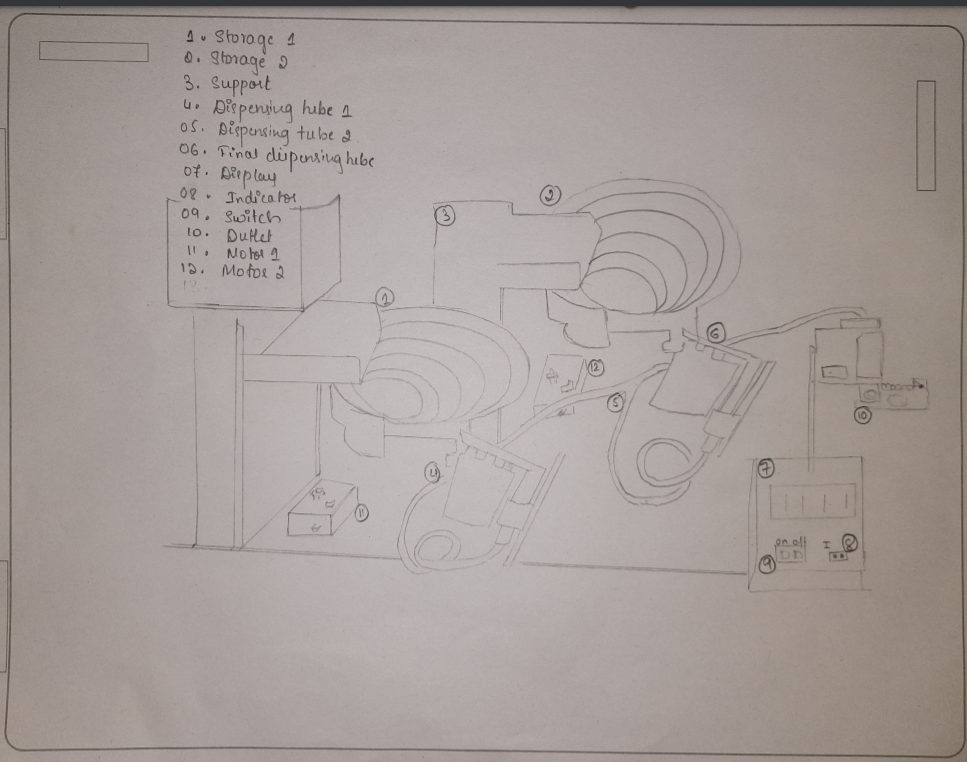 1. Storage 1
2. Storage 2
3. Support
4. Dispensing tube 1
05. Dispensing tube 2
06. Final dispensing tube
07. Display
08. Indicator
09. Switch
10. Outlet
11. Motor 1
12. Motor 2
13.
2
3
1
6
12
5
10
4
7
11
on off
I
8
9